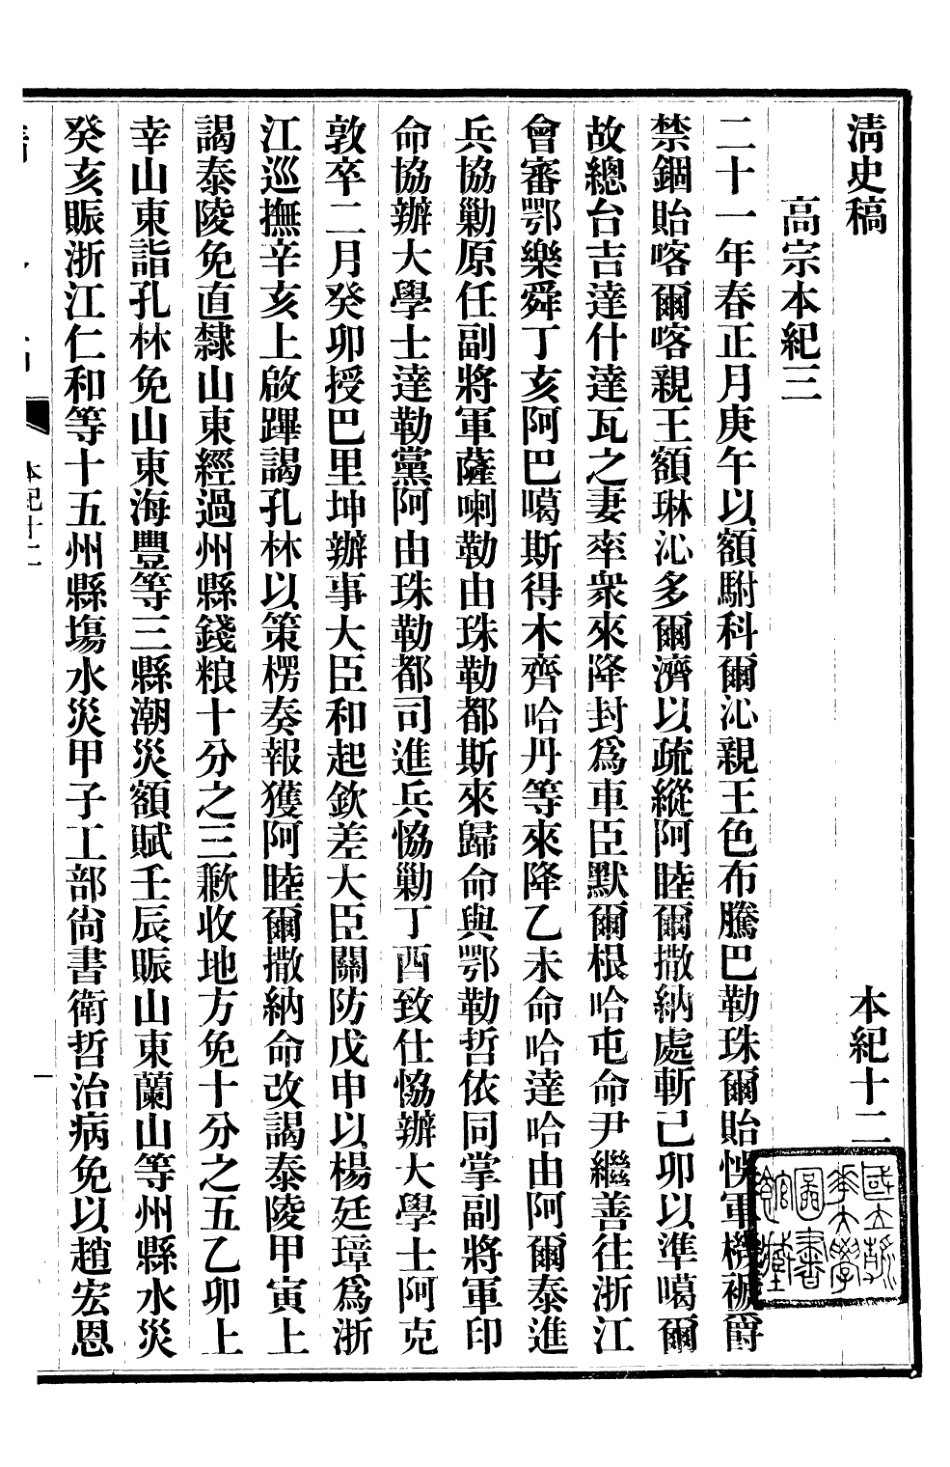 清史稿　本紀十二
高宗本紀三
二十一年春正月庚午以額駙科爾沁親王色布騰巴勒珠爾貽悞軍機褫爵
禁錮貽喀爾喀親王額琳沁多爾濟以疏縱阿睦爾撒納處斬己卯以準噶爾
故總台吉達什達瓦之妻率衆來降封爲車臣默爾根哈屯命尹繼善往浙江
會審鄂樂舜丁亥阿巴噶斯得木齊哈丹等來降乙未命哈達哈由阿爾泰進
兵協勦原任副將軍薩喇勒由珠勒都斯來歸命與鄂勒哲依同掌副將軍印
命協辦大學士達勒黨阿由珠勒都司進兵協勦丁酉致仕協辦大學士阿克
敦卒二月癸卯授巴里坤辦事大臣和起欽差大臣關防戊申以楊廷璋爲浙
江巡撫辛亥上啟蹕謁孔林以策楞奏報獲阿睦爾撒納命改謁泰陵甲寅上
謁泰陵免直隸山東經過州縣錢粮十分之三歉收地方免十分之五乙卯上
幸山東詣孔林免山東海豐等三縣潮災額賦壬辰賑山東蘭山等州縣水災
癸亥賑浙江仁和等十五州縣塲水災甲子工部尙書衞哲治病免以趙宏恩
本紀十二
一
國立清華大學圖書館藏